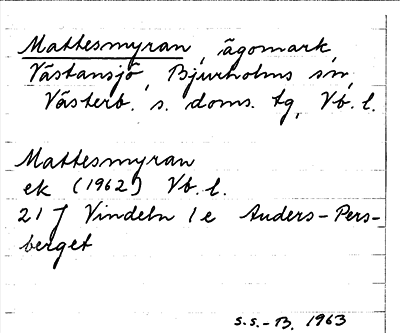 Mattesmyran, ägomark,
Västansjö, Bjurholms sn,
Västerb. s. doms. tg, Vb. l.
Mattesmyran
ek (1962) Vb. l.
21 J Vindeln 1 e Anders-Pers-
berget
S.S.-B. 1963